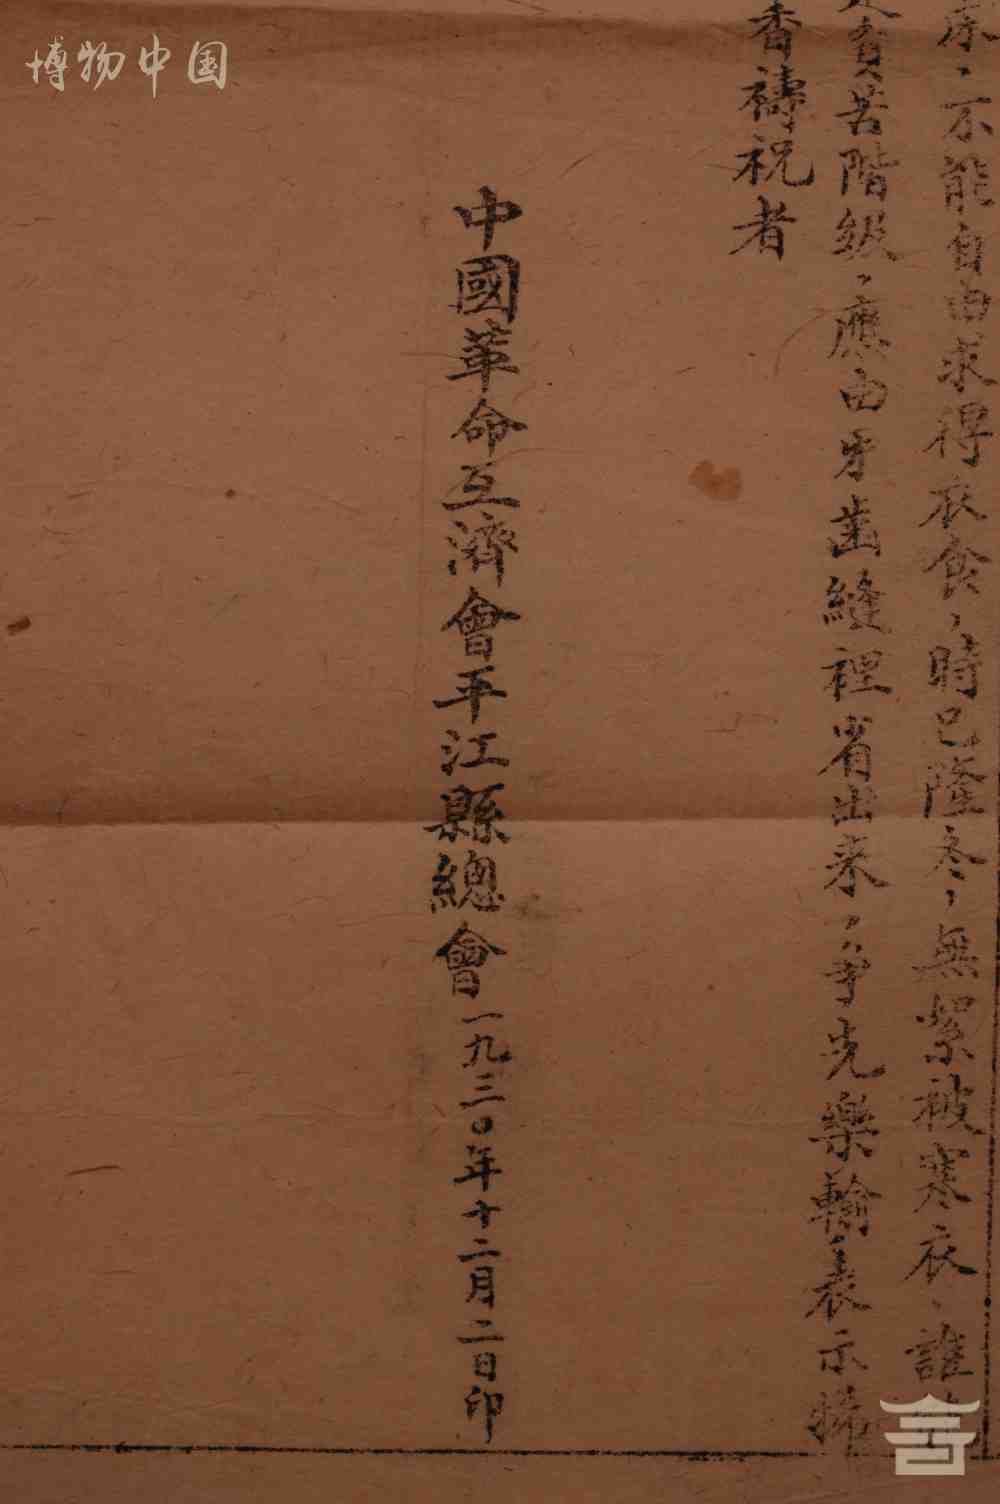 不能自由求得衣食，時已隆冬，無絮被寒衣，誰
貧苦階級，應由牙齒縫裡省出來，爭先樂輸，表示
香禱祝者
中國革命互濟會平江縣總會一九三〇年十二月二日印
博物中国